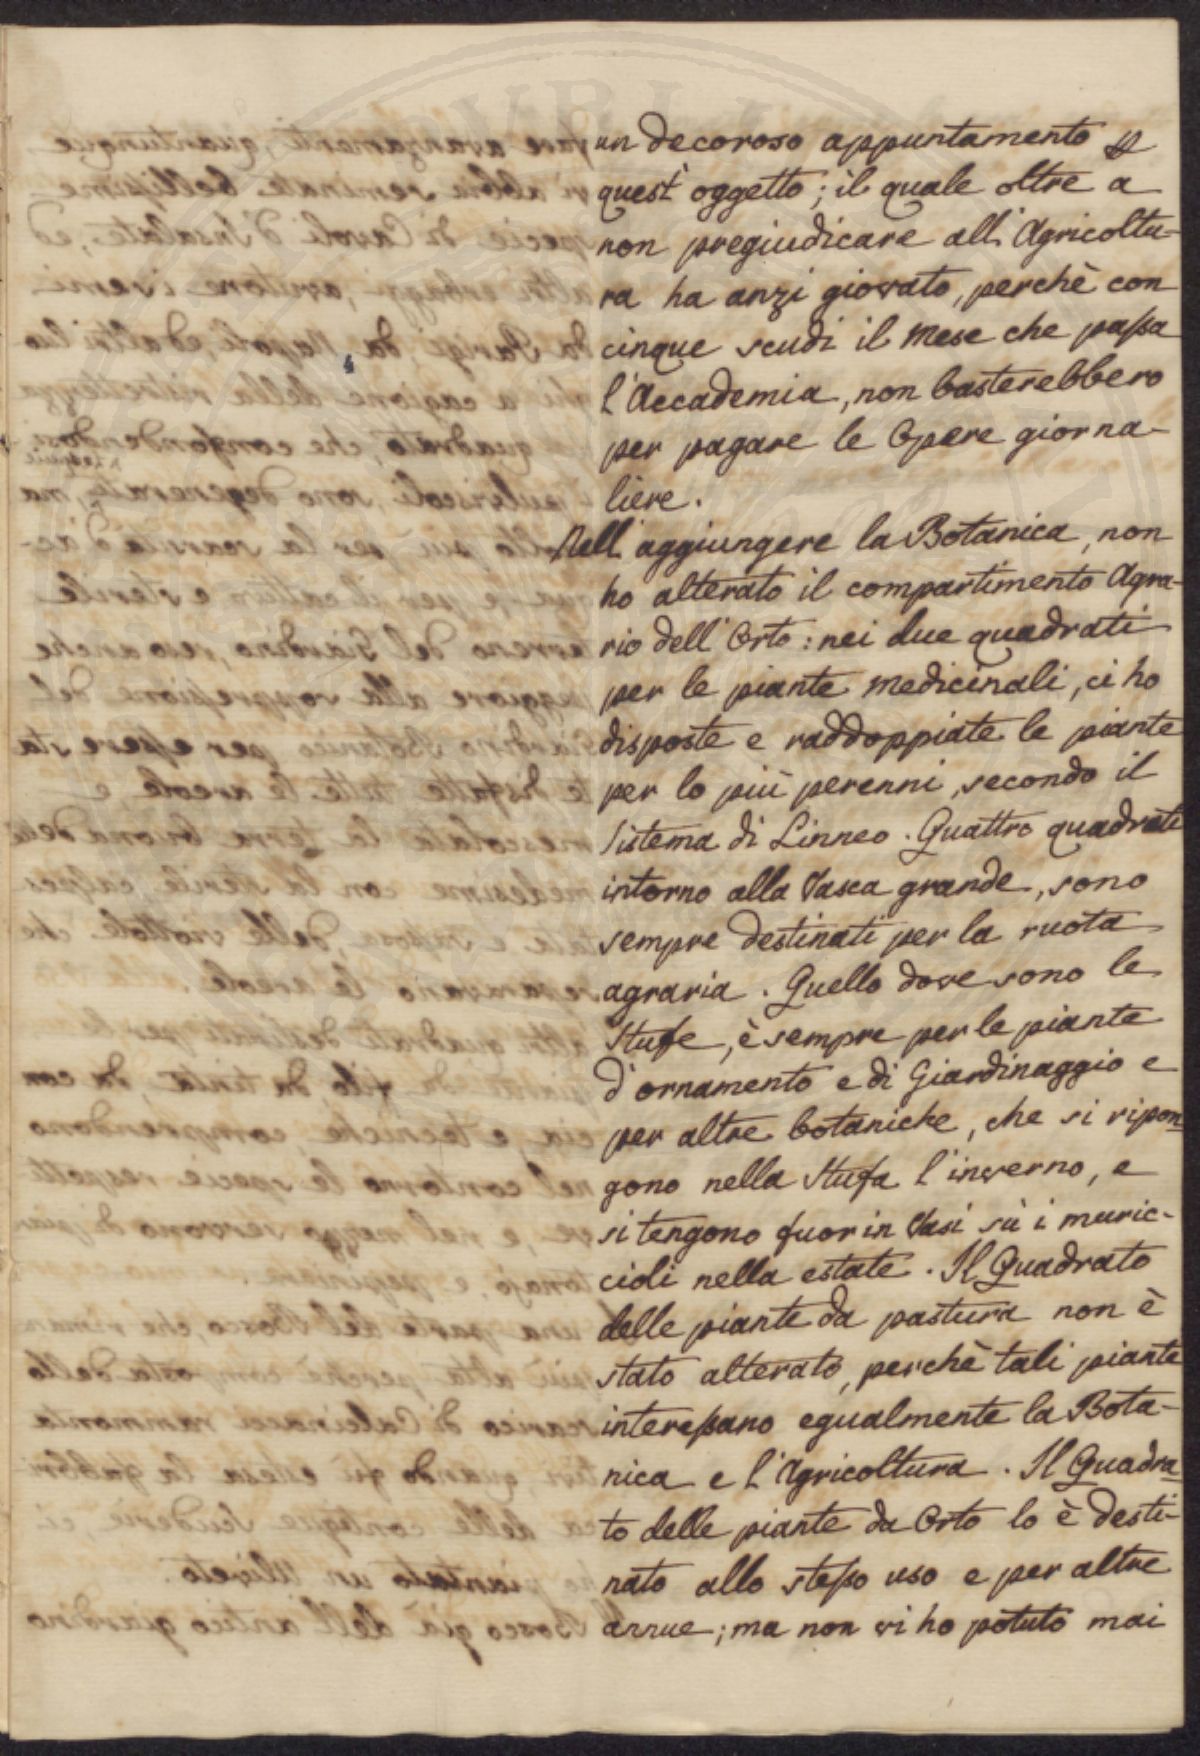 un decoroso appuntamento
quest' oggetto; il quale oltre a
non pregiudicare all' Agricoltu-
ra ha anzi giovato, perchè con
cinque scudi il Mese che passa
l'Accademia, non basterebbero
per pagare le Opere giorna-
liere.
Nell' aggiungere la Botanica, non
ho alterato il compartimento Agra-
rio dell' Orto: nei due quadrati
per le piante medicinali, ci ho
disposte e raddoppiate le piante
per lo più perenni, secondo il
Sistema di Linneo. Quattro quadrati
intorno alla Vasca grande, sono
sempre destinati per la ruota
agraria. Quello dove sono le
Stufe, è sempre per le piante
d'ornamento e di Giardinaggio e
per altre botaniche, che si ripon-
gono nella Stufa l'inverno, e
si tengono fuor in Vasi sù i muric-
cioli nella estate. Il Quadrato
delle piante da pastura non è
stato alterato, perchè tali piante
interessano egualmente la Bota-
nica e l'Agricoltura. Il Quadra-
to delle piante da Orto lo è desti-
nato allo stesso uso e per altre
annue; ma non vi ho potuto mai